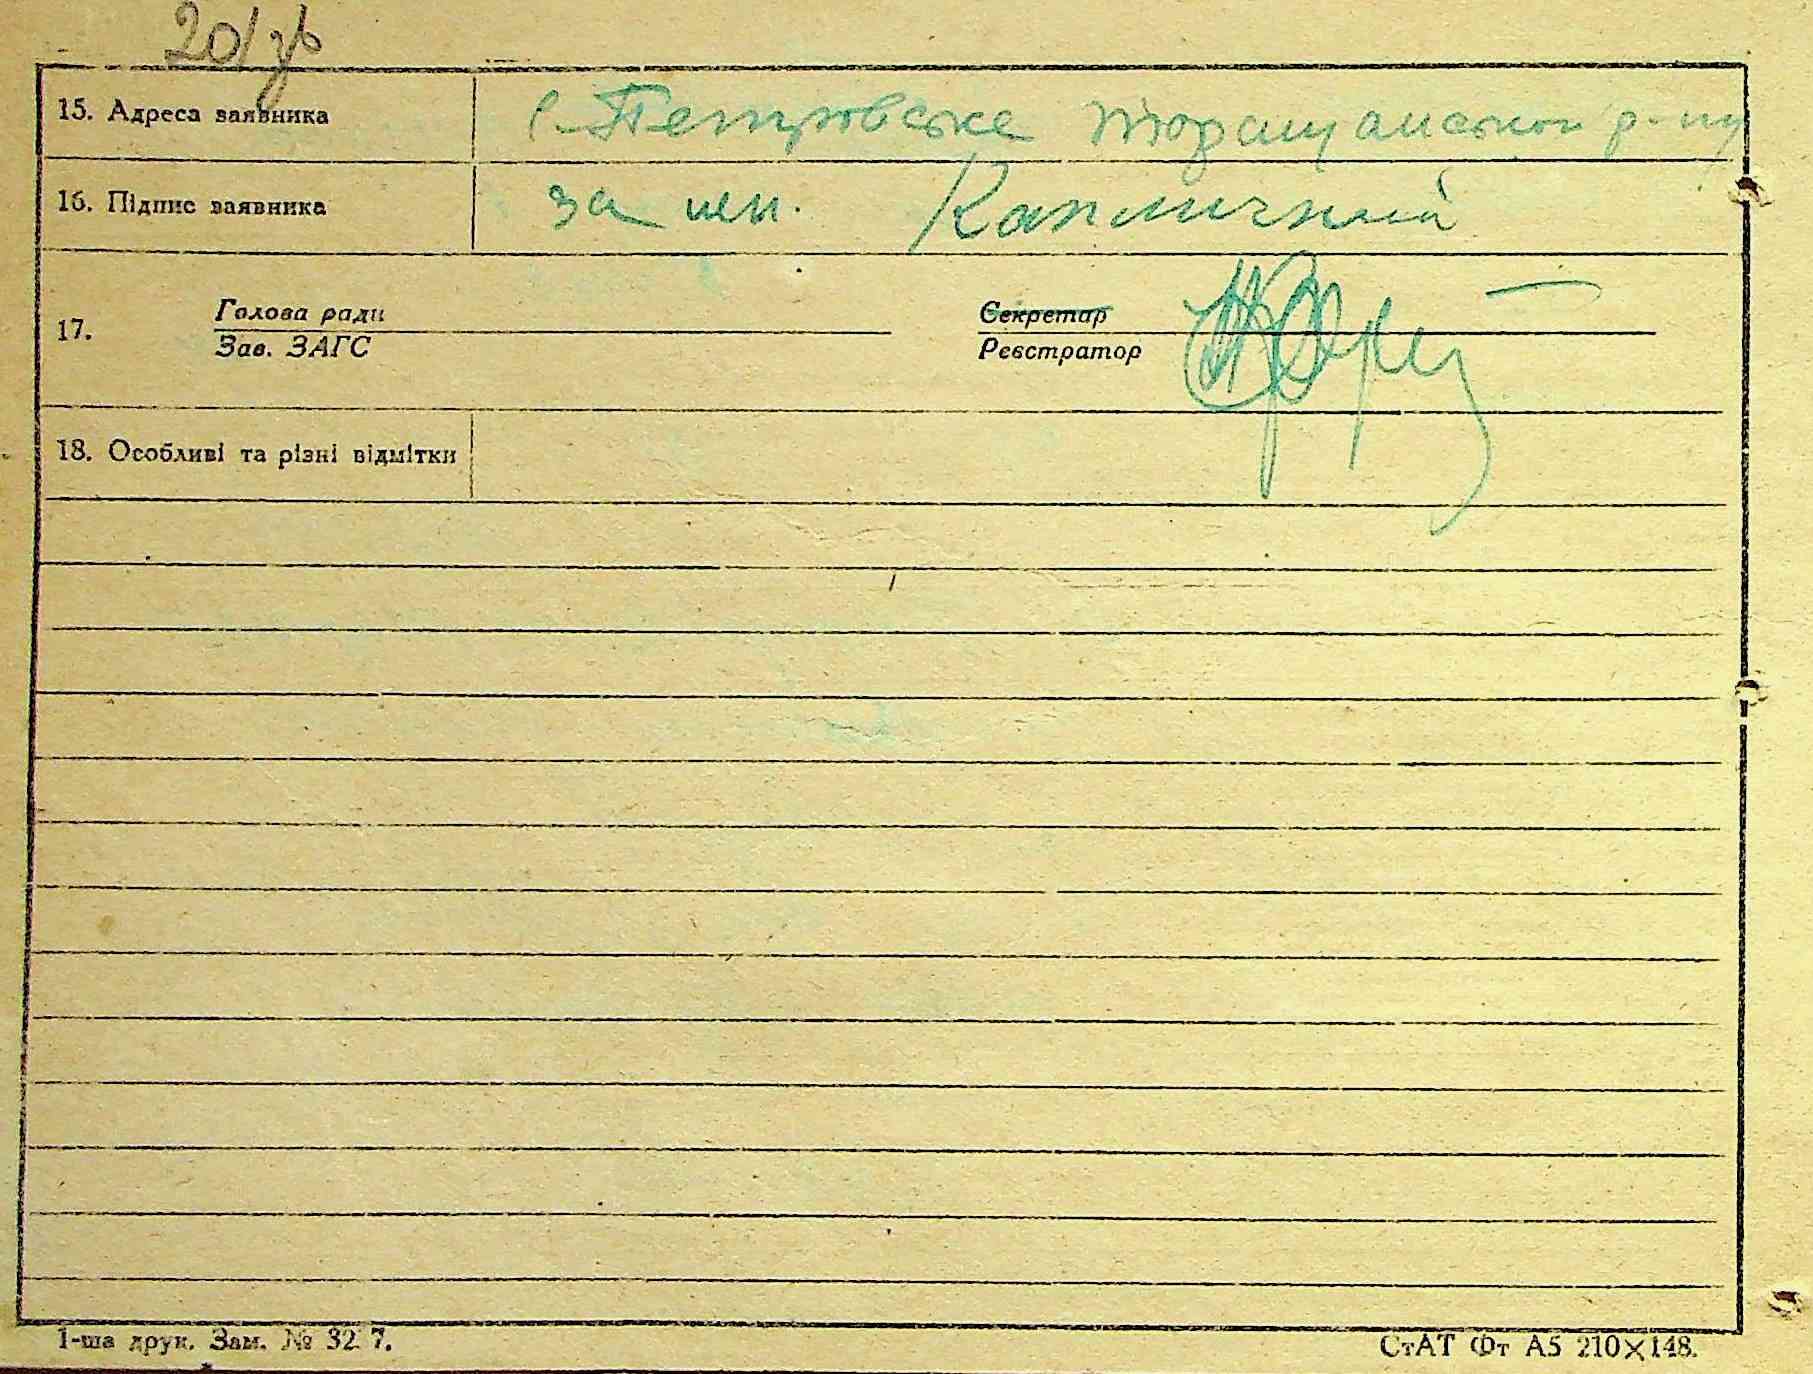 201 зв
15. Адреса заявника с. Петровське Таращанськои р-ну
16. Підпис заявника за неп. Капличний
Голова ради Секретар
17.
Зав. ЗАГС Реєстратор
18. Особливі та різні відмітки
1-ша друк. Зам. № 32 7. СтАТ Фт А5 210×148.